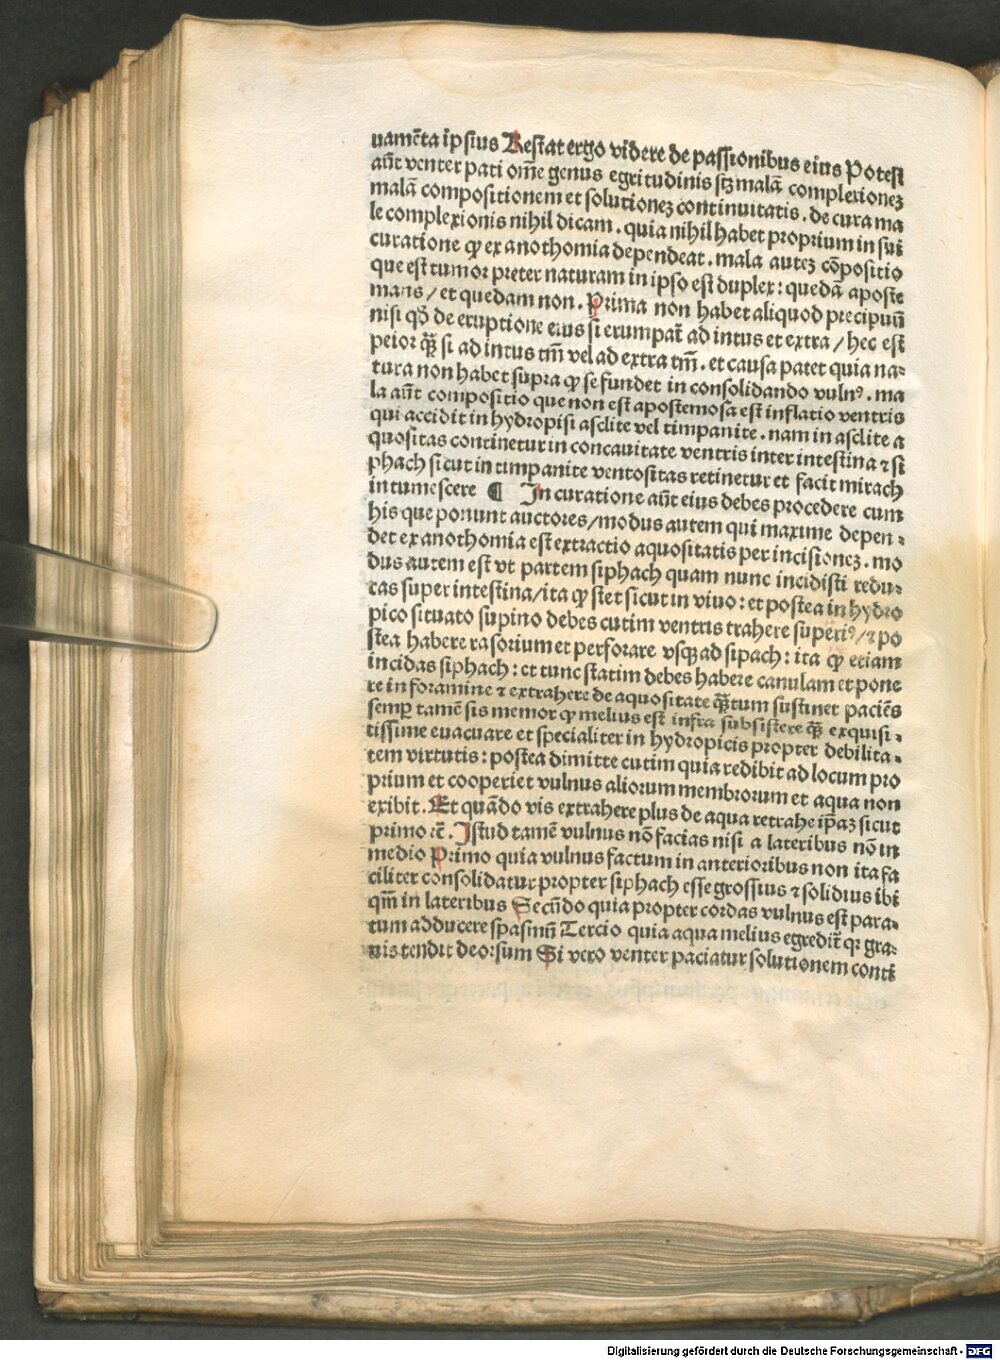 uamēta ipsius Restat ergo videre de passionibus eius Potest
aūt venter pati om̄e genus egritudinis sꝫ malā complexionēꝫ
malā compositionem et solutionēꝫ continuitatis. de cura ma
le complexionis nihil dicam. quia nihil habet proprium in sui
curatione ꝙ ex anothomia dependeat. mala auteꝫ cōpositio
que est tumor preter naturam in ipso est duplex: quedā aposte
mans/ et quedam non. Prima non habet aliquod precipuū
nisi qꝫ de eruptione eius si erumpat̄ ad intus et extra/ hec est
peior qꝫ̄ si ad intus tm̄ vel ad extra tm̄. et causa patet quia na⸗
tura non habet supra ꝙ se fundet in consolidando vulnꝰ. ma
la aūt compositio que non est apostemosa est inflatio ventris
qui accidit in hydropisi asclite vel timpanite. nam in asclite a
quositas continetur in concauitate ventris inter intestina ⁊ si
phach sicut in timpanite ventositas retinetur et facit mirach
intumescere ¶ In curatione aūt eius debes procedere cum
his que ponunt auctores/modus autem qui maxime depen⸗
det ex anothomia est extractio aquositatis per incisioneꝫ. mo
dus autem est vt partem siphach quam nunc incidisti redu⸗
cas super intestina/ita ꝙ stet sicut in viuo: et postea in hydro
pico situato supino debes cutim ventris trahere superiꝰ/⁊ po
stea habere rasorium et perforare vsqꝫ ad sipach: ita ꝙ etiam
incidas siphach: et tunc statim debes habere canulam et pone
re in foramine ⁊ extrahere de aquositate qꝫ̄tum sustinet paciēs
semꝑ tamē sis memor ꝙ melius est infra subsistere qꝫ̄ exquisi⸗
tissime euacuare et specialiter in hydropicis propter debilita⸗
tem virtutis: postea dimitte cutim quia redibit ad locum pro
prium et cooperiet vulnus aliorum membrorum et aqua non
exibit. Et quādo vis extrahere plus de aqua retrahe ip̄aꝫ sicut
primo ⁊c̄. Istud tamē vulnus nō facias nisi a lateribus nō in
medio Primo quia vulnus factum in anterioribus non ita fa
ciliter consolidatur propter siphach esse grossius ⁊ solidius ibi
qm̄ in lateribus Secūdo quia propter cordas vulnus est para⸗
tum adducere spasmū Tercio quia aqua melius egredit̄ qꝛ gra⸗
uis tendit deorsum Si vero venter paciatur solutionem conti
Digitalisierung gefördert durch die Deutsche Forschungsgemeinschaft - DFG